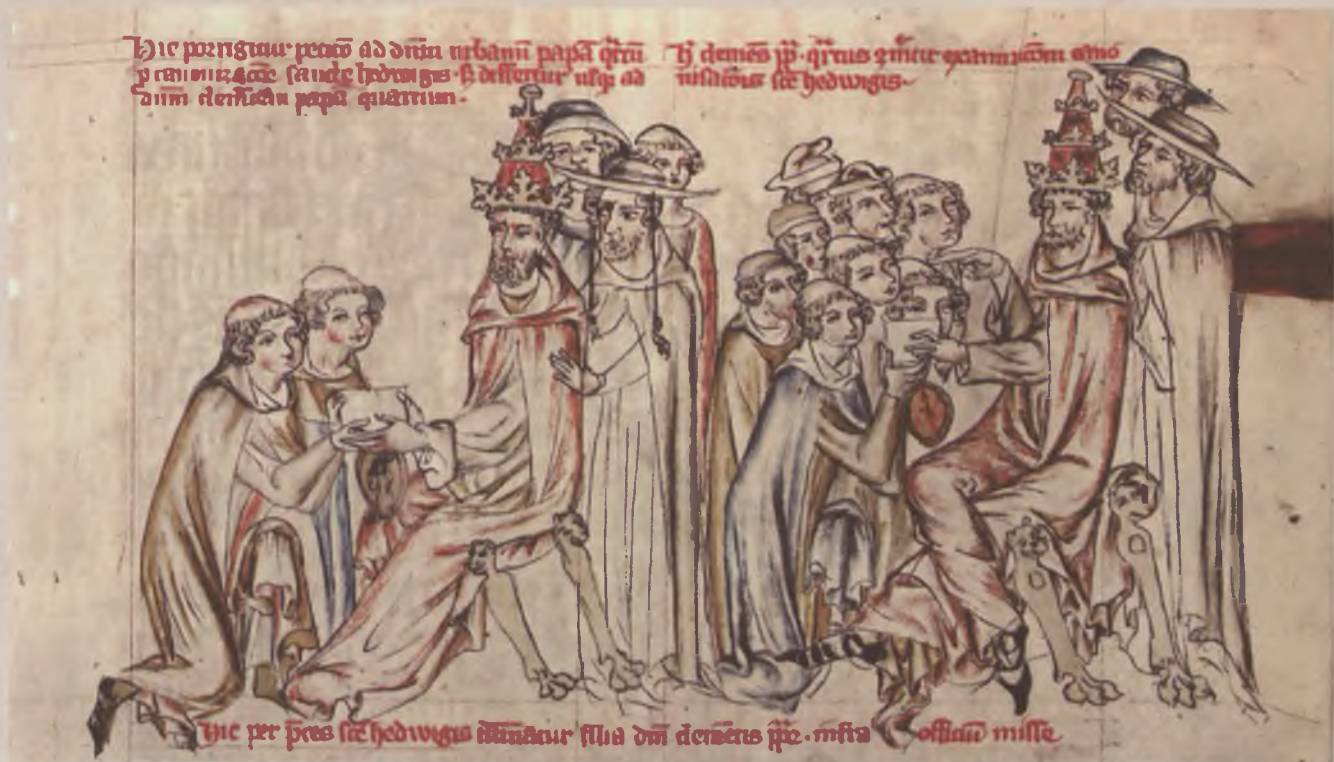 Hic porrigitur peticō ad dnm urbanū papā qrtū
p canonizacōe sancte hedwigis · s; differtur usq; ad
dnm clementem papā quartum ·
hJ clemēs pp · qrtus
nisacōnis scē hedwigis ·
Hic per p̄ces scē hedwigis illuminatur filia dm̄ clemētis ppe · infra officiū misse